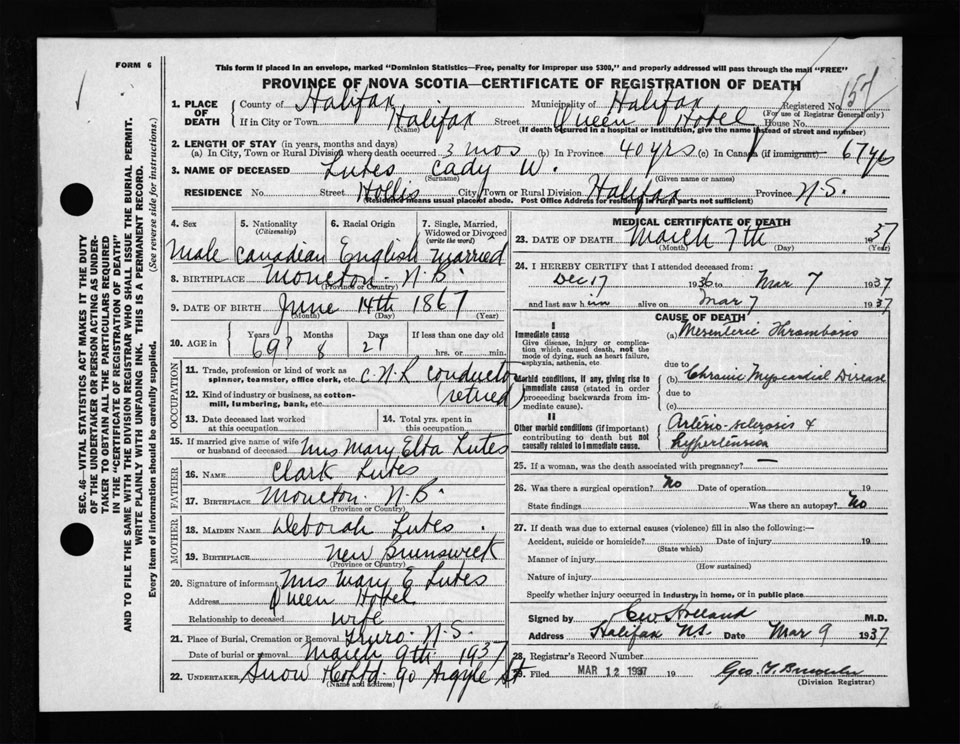 FORM 6
This form if placed in an envelope, marked "Dominion Statistics—Free, penalty for improper use $300," and properly addressed will pass through the mail "FREE"
PROVINCE OF NOVA SCOTIA—CERTIFICATE OF REGISTRATION OF DEATH
157
1. PLACE OF DEATH
County of Halifax Municipality of Halifax Registered No.
(For use of Registrar General only)
If in City or Town Halifax Street Queen Hotel House No.
(Name) (If death occurred in a hospital or institution, give the name instead of street and number)
2. LENGTH OF STAY (in years, months and days)
(a) In City, Town or Rural Division where death occurred 3 mos (b) In Province 40 yrs (c) In Canada (if immigrant) 67 yrs
3. NAME OF DECEASED Lutes Cady W.
(Surname) (Given name or names)
RESIDENCE No. Street Hollis City, Town or Rural Division Halifax Province N.S.
(Residence means usual place of abode. Post Office Address for residents in rural parts not sufficient)
4. Sex
Male
5. Nationality (Citizenship)
Canadian
6. Racial Origin
English
7. Single, Married, Widowed or Divorced (write the word)
Married
8. BIRTHPLACE Moncton N.B.
(Province or Country)
9. DATE OF BIRTH June 14th 1867
(Month) (Day) (Year)
10. AGE in Years Months Days If less than one day old
69 8 21 hrs. or min.
OCCUPATION
11. Trade, profession or kind of work as spinner, teamster, office clerk, etc. C.N.R conductor
12. Kind of industry or business, as cotton-mill, lumbering, bank, etc. (retired)
13. Date deceased last worked at this occupation
14. Total yrs. spent in this occupation
15. If married give name of wife or husband of deceased Mrs Mary Elta Lutes
FATHER
16. NAME Clark Lutes
17. BIRTHPLACE Moncton N.B.
(Province or Country)
MOTHER
18. MAIDEN NAME Deborah Lutes
19. BIRTHPLACE New Brunswick
(Province or Country)
20. Signature of informant Mrs Mary E Lutes
Address Queen Hotel
Relationship to deceased wife
21. Place of Burial, Cremation or Removal Truro N.S.
Date of burial or removal March 9th 1937
22. UNDERTAKER Snow 90 Argyle St
(Name and address)
MEDICAL CERTIFICATE OF DEATH
23. DATE OF DEATH March 7th 1937
(Month) (Day) (Year)
24. I HEREBY CERTIFY that I attended deceased from:
Dec 17 1936 to Mar 7 1937
and last saw him alive on Mar 7 1937
CAUSE OF DEATH
I
Immediate cause
Give disease, injury or complication which caused death, not the mode of dying, such as heart failure, asphyxia, asthenia, etc.
(a) Mesenteric Thrombosis
due to
Morbid conditions, if any, giving rise to immediate cause (stated in order proceeding backwards from immediate).
(b) Chronic Myocardial Disease
due to
(c)
II
Other morbid conditions (if important) contributing to death but not causally related to immediate cause.
Arterio-sclerosis &
Hypertension
25. If a woman, was the death associated with pregnancy? —
26. Was there a surgical operation? No Date of operation 19
State findings Was there an autopsy? No
27. If death was due to external causes (violence) fill in also the following:—
Accident, suicide or homicide? Date of injury 19
(State which)
Manner of injury
(How sustained)
Nature of injury
Specify whether injury occurred in industry, in home, or in public place
Signed by CW Holland M.D.
Address Halifax NS. Date Mar 9 1937
28. Registrar's Record Number
29. Filed MAR 12 1937 19
(Division Registrar)
SEC. 46—VITAL STATISTICS ACT MAKES IT THE DUTY
OF THE UNDERTAKER OR PERSON ACTING AS UNDER-
TAKER TO OBTAIN ALL THE PARTICULARS REQUIRED
IN THE "CERTIFICATE OF REGISTRATION OF DEATH"
AND TO FILE THE SAME WITH THE DIVISION REGISTRAR WHO SHALL ISSUE THE BURIAL PERMIT.
WRITE PLAINLY WITH UNFADING INK. THIS IS A PERMANENT RECORD.
Every item of information should be carefully supplied. (See reverse side for instructions.)